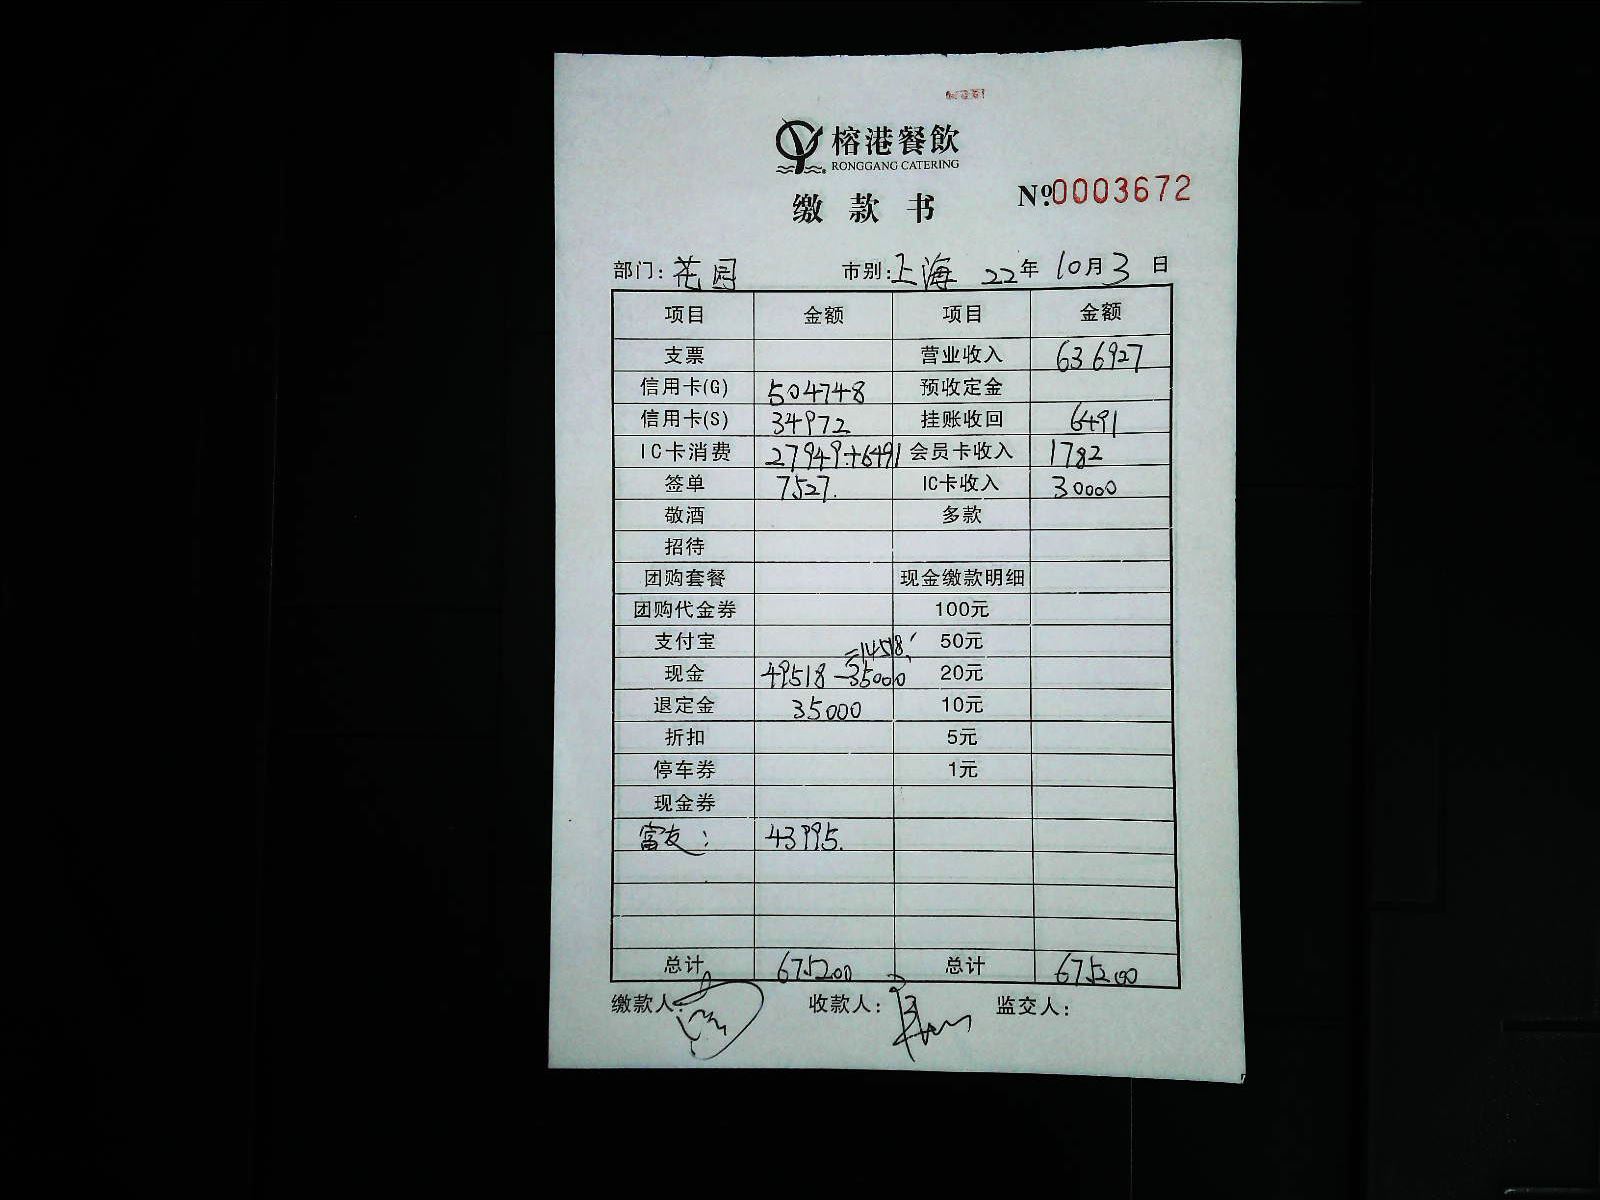 榕港餐飲
RONGGANG CATERING
缴款书 Nº.0003672
部门：花园 市别：上海 22年10月3日
项目 金额 项目 金额
支票 营业收入 636927
信用卡(G) 504748 预收定金
信用卡(S) 34972 挂账收回 6491
IC卡消费 27949+6491 会员卡收入 1782
签单 7527. IC卡收入 30000
敬酒 多款
招待
团购套餐 现金缴款明细
团购代金券 100元
支付宝 50元
=14518
现金 49518-35000 20元
退定金 35000 10元
折扣 5元
停车券 1元
现金券
富友： 43995.
总计 675200 总计 675200
缴款人： 收款人： 监交人：